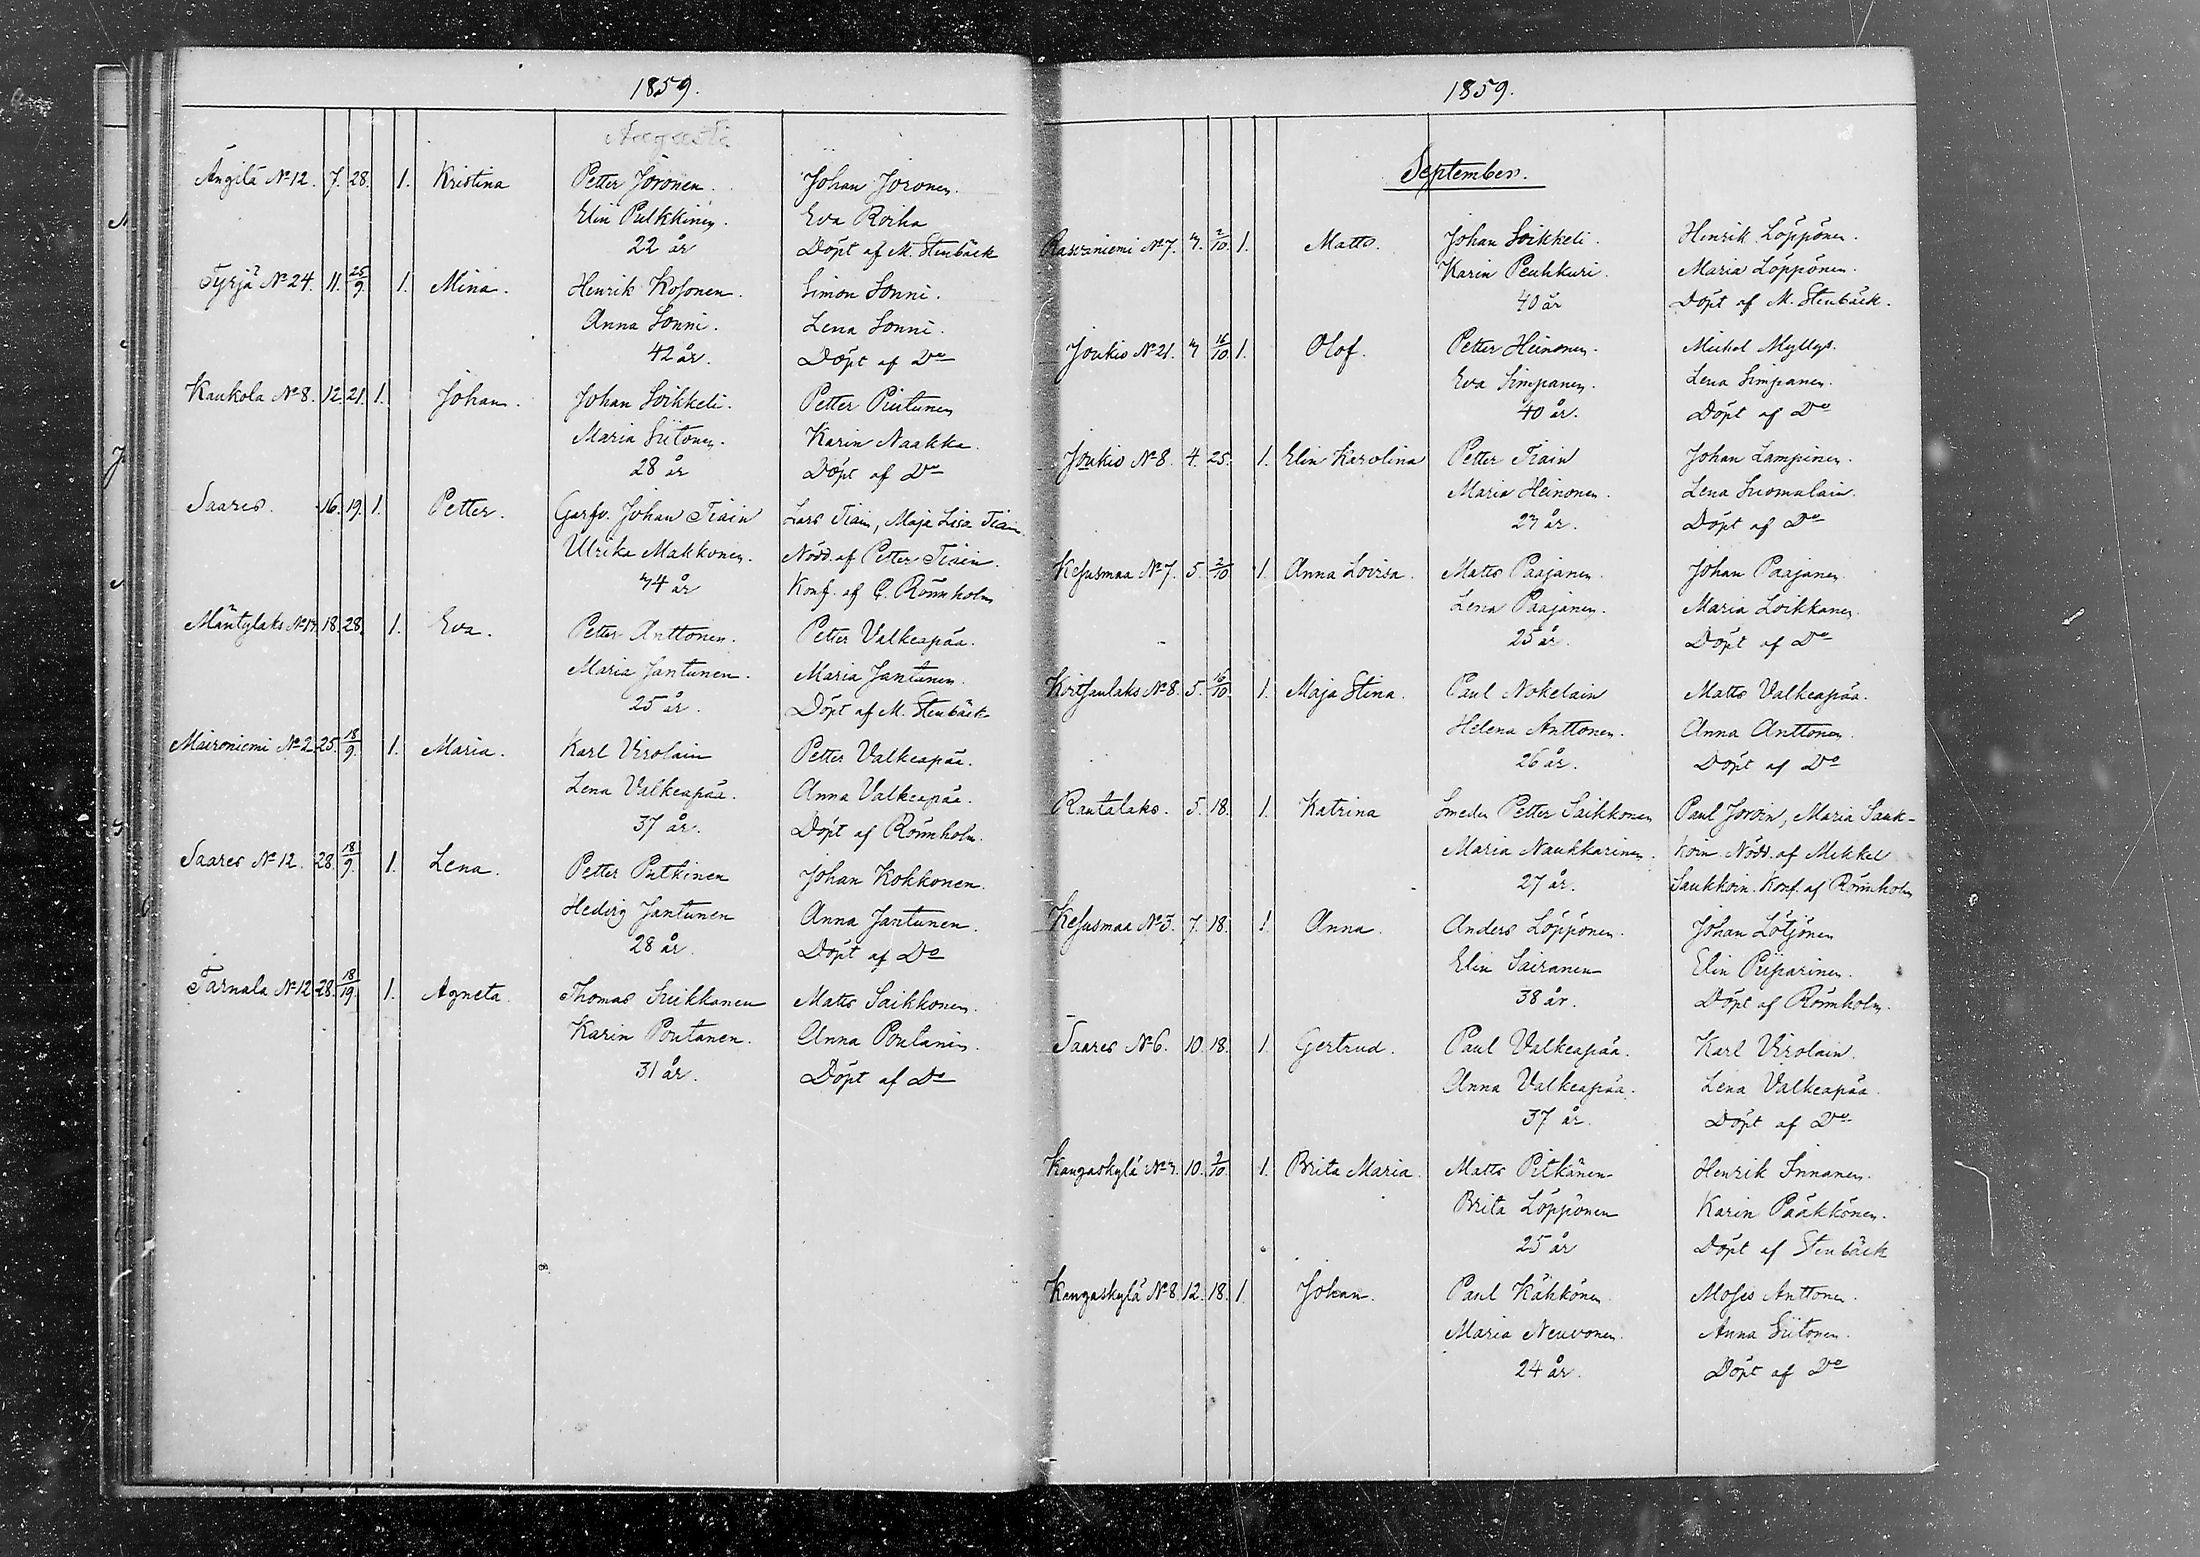 1859.
Augusti
Ängilä No 12. 7. 28. 1. Kristina Petter Joronen. Johan Joronen.
Elin Pulkkinen. Eva Roiha
22 år Döpt af M. Stenbäck
Tyrjä No 24. 11. 25/9 1. Mina. Henrik Kosonen. Simon Sonni.
Anna Sonni. Lena Sonni.
42 år. Döpt af Do
Kaukola No 8. 12. 21. 1. Johan. Johan Soikkeli. Petter Piutunen
Maria Siitonen. Karin Naakka.
28 år Döpt af Do
Saares. 16. 19. 1. Petter. Garfv. Johan Tiain Lars Tiain, Maja Lisa Tiain
Ulrika Makkonen. Nödd. af Petter Tiain.
44 år Konf. af C. Rönnholm
Mäntylaks 18. 28. 1. Eva. Petter Anttonen. Petter Valkeapää.
Maria Jantunen. Maria Jantunen.
25 år. Döpt af M. Stenbäck
Maironiemi No 2. 25. 18/9. 1. Maria. Karl Virolain Petter Valkeapää.
Lena Valkeapää. Anna Valkeapää.
37 år. Döpt af Rönnholm.
Saares No 12. 28. 18/9. 1. Lena. Petter Putkinen Johan Kokkonen.
Hedvig Jantunen Anna Jantunen.
28 år. Döpt af Do
Tarnala No 12 28. 18/19. 1. Agneta. Thomas Suikkanen Matts Saikkonen.
Karin Poutanen. Anna Poutanen.
31 år. Döpt af Do
1859.
September.
Rasvaniemi No 7. 2/10. 1. Matts. Johan Soikkeli. Henrik Löppönen.
Karin Peuhkuri. Maria Löppönen.
40 år Döpt af M. Stenbäck.
Joukio No 21. 16/10. 1. Olof. Petter Heinonen. Mickel Myllys.
Eva Simpanen. Lena Simpanen.
40 år. Döpt af Do
Joukio No 8. 4. 25. 1. Elin Karolina Petter Tiain Johan Lampinen.
Maria Heinonen. Lena Suomalain.
23 år. Döpt af Do
Kesusmaa No 7. 5. 2/10 1. Anna Lovisa. Matts Paajanen. Johan Paajanen
Lena Paajanen. Maria Loikkanen.
25 år. Döpt af Do
Koitsanlaks No 8. 5. 16/10 1. Maja Stina. Paul Nokelain Matts Valkeapää.
Helena Anttonen. Anna Anttonen.
26 år. Döpt af Do
Rautalaks. 5. 18. 1. Katrina Smeden Petter Saikkonen Paul Jorvin, Maria Sauk-
Maria Naukkarinen. koin. Nödd. af Mikkel
27 år. Saukkoin. Konf. af Rönnholm
Kesusmaa No 3. 7. 18. 1. Anna. Anders Löppönen. Johan Lötjönen
Elin Sairanen Elin Piiparinen.
38 år. Döpt af Rönnholm.
Saares No 6. 10. 18. 1. Gertrud. Paul Valkeapää. Karl Virolain.
Anna Valkeapää. Lena Valkeapää.
37 år. Döpt af Do
Kangaskylä 10. 2/10 1. Brita Maria. Matts Pitkänen Henrik Innanen.
Brita Löppönen Karin Pääkkönen.
25 år Döpt af Stenbäck
Kangaskylä No 8. 12. 18. 1. Johan. Paul Kähkönen Moses Anttonen.
Maria Neuvonen. Anna Siitonen.
24 år. Döpt af Do